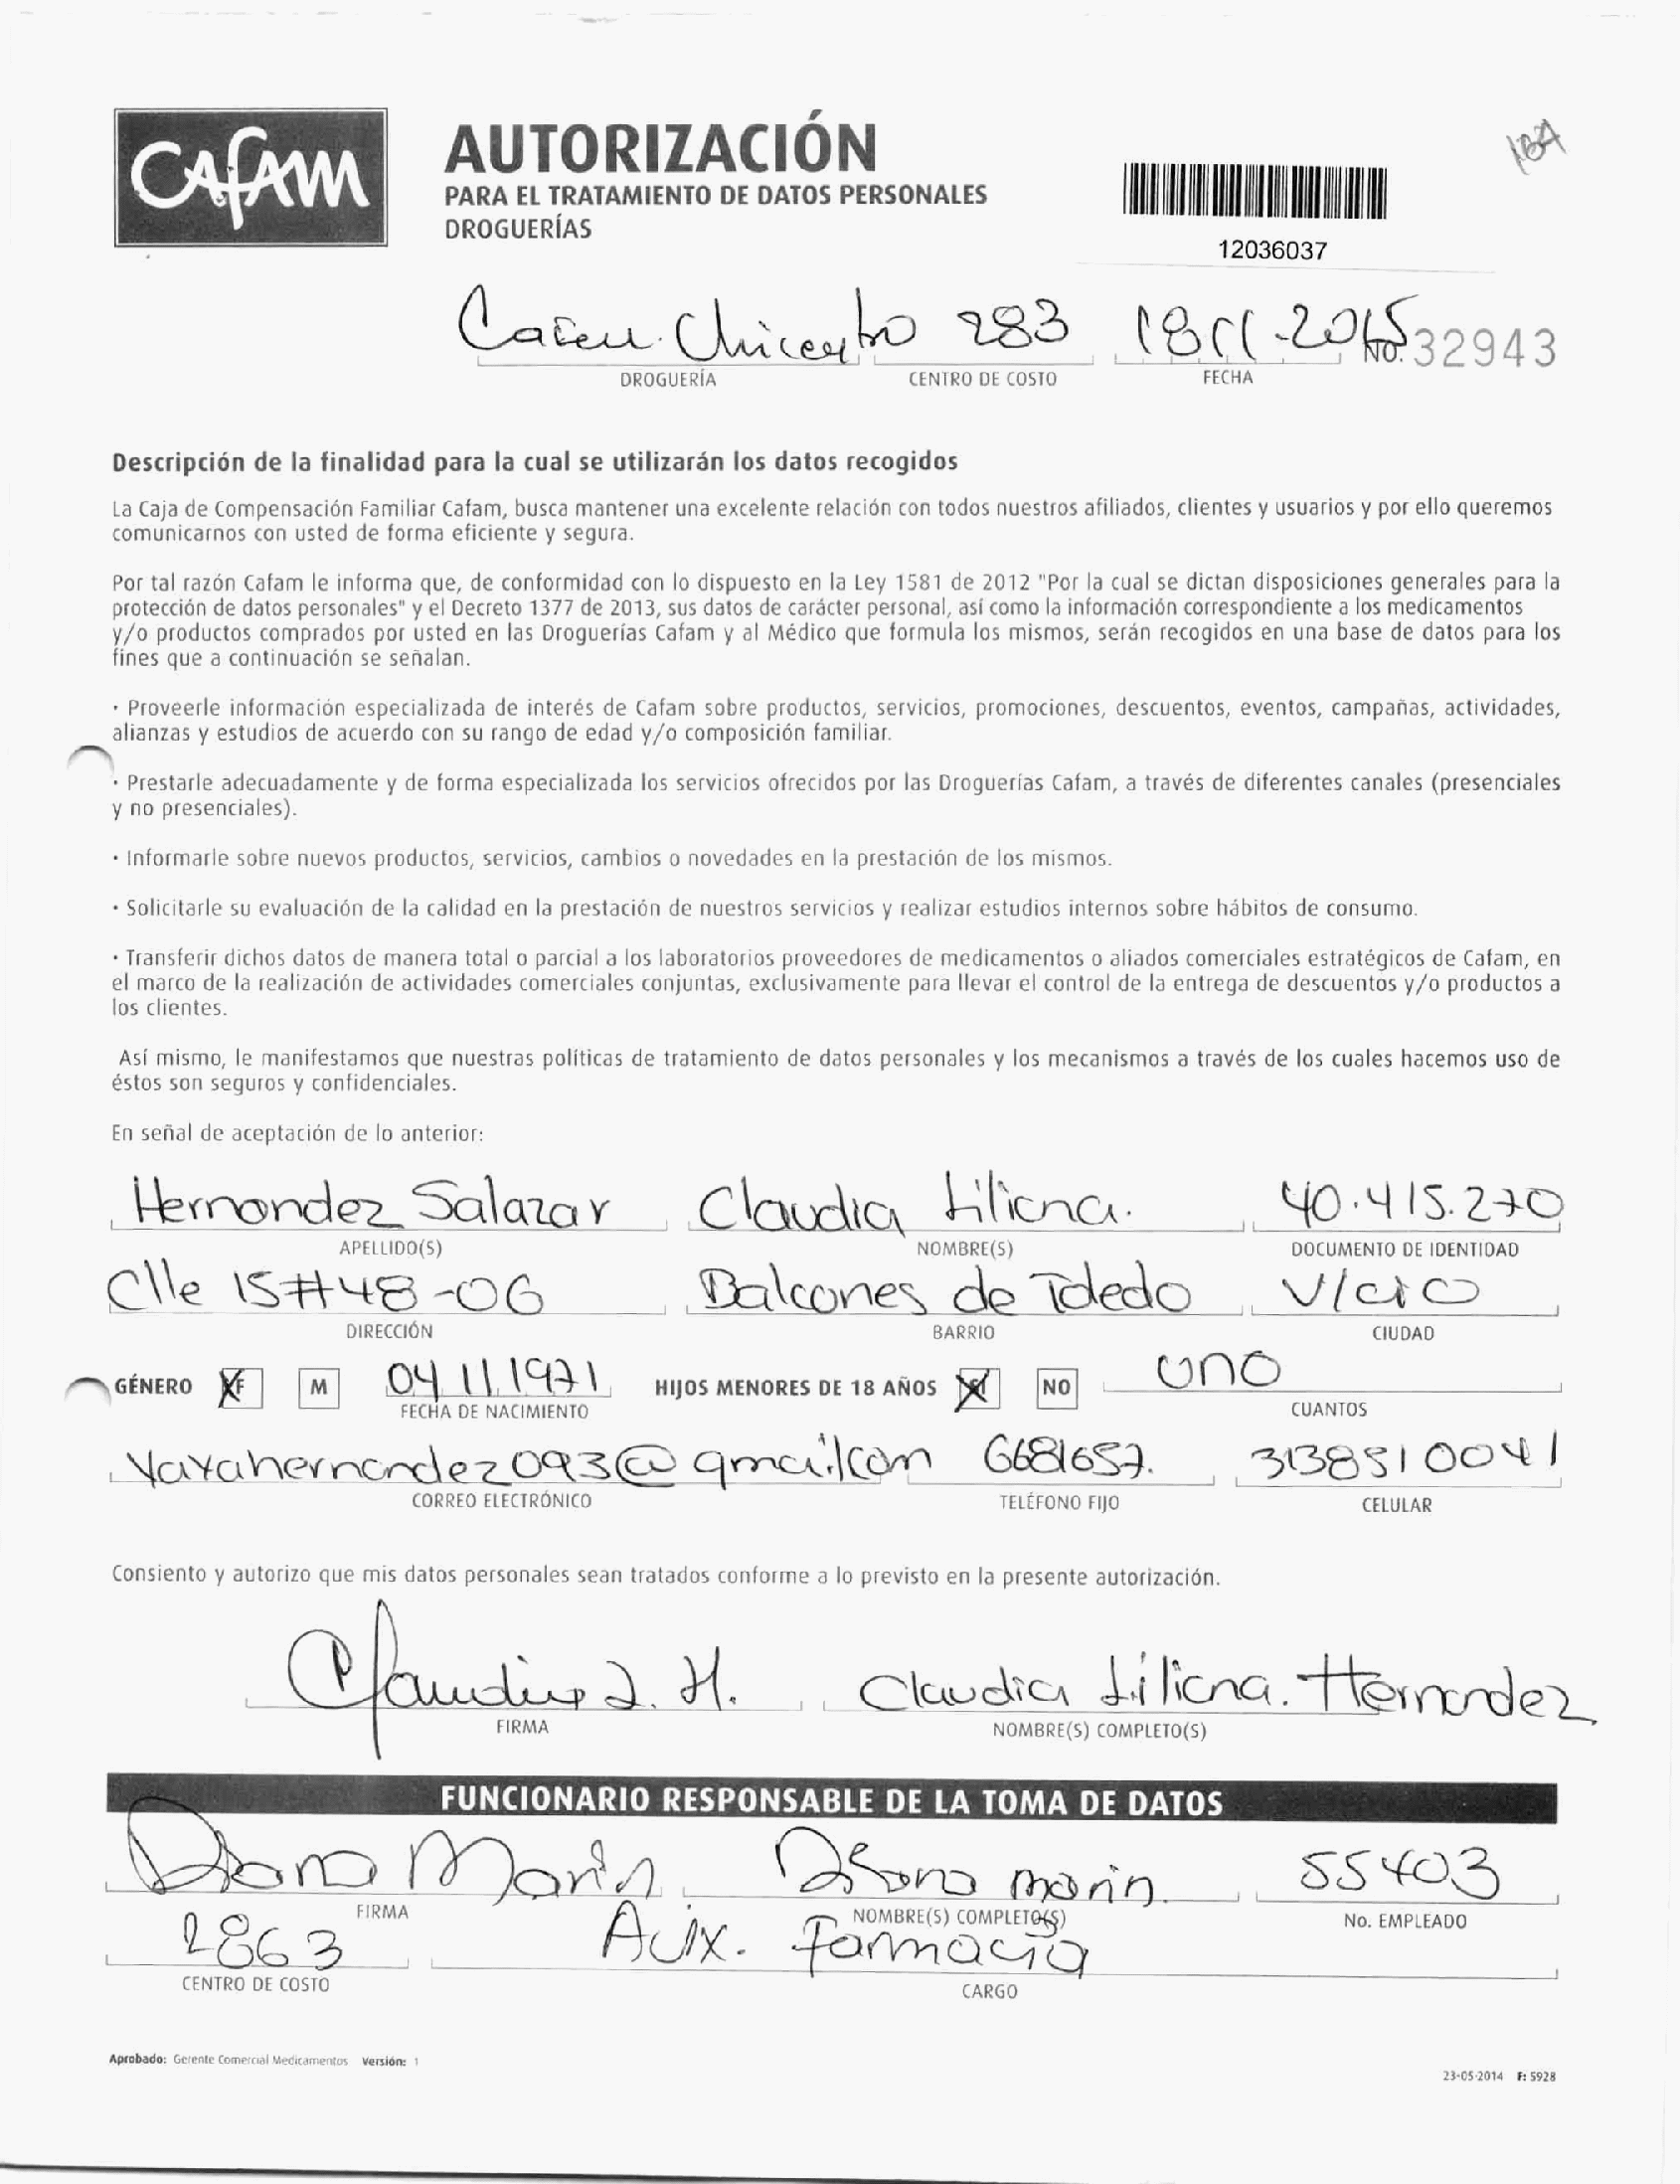 Cafam
AUTORIZACIÓN
PARA EL TRATAMIENTO DE DATOS PERSONALES
DROGUERÍAS
12036037
283 18 11 2015 No. 32943
DROGUERÍA CENTRO DE COSTO FECHA
Descripción de la finalidad para la cual se utilizarán los datos recogidos
La Caja de Compensación Familiar Cafam, busca mantener una excelente relación con todos nuestros afiliados, clientes y usuarios y por ello queremos
comunicarnos con usted de forma eficiente y segura.
Por tal razón Cafam le informa que, de conformidad con lo dispuesto en la Ley 1581 de 2012 "Por la cual se dictan disposiciones generales para la
protección de datos personales" y el Decreto 1377 de 2013, sus datos de carácter personal, así como la información correspondiente a los medicamentos
y/o productos comprados por usted en las Droguerías Cafam y al Médico que formula los mismos, serán recogidos en una base de datos para los
fines que a continuación se señalan.
· Proveerle información especializada de interés de Cafam sobre productos, servicios, promociones, descuentos, eventos, campañas, actividades,
alianzas y estudios de acuerdo con su rango de edad y/o composición familiar.
· Prestarle adecuadamente y de forma especializada los servicios ofrecidos por las Droguerías Cafam, a través de diferentes canales (presenciales
y no presenciales).
· Informarle sobre nuevos productos, servicios, cambios o novedades en la prestación de los mismos.
· Solicitarle su evaluación de la calidad en la prestación de nuestros servicios y realizar estudios internos sobre hábitos de consumo.
· Transferir dichos datos de manera total o parcial a los laboratorios proveedores de medicamentos o aliados comerciales estratégicos de Cafam, en
el marco de la realización de actividades comerciales conjuntas, exclusivamente para llevar el control de la entrega de descuentos y/o productos a
los clientes.
Así mismo, le manifestamos que nuestras políticas de tratamiento de datos personales y los mecanismos a través de los cuales hacemos uso de
éstos son seguros y confidenciales.
En señal de aceptación de lo anterior:
Hernandez Salazar Claudia Liliana. 40.415.270
APELLIDO(S) NOMBRE(S) DOCUMENTO DE IDENTIDAD
Clle 15#48-06 Balcones de Toledo V/cio
DIRECCIÓN BARRIO CIUDAD
GÉNERO F M 04 11 1971 HIJOS MENORES DE 18 AÑOS SI NO uno
FECHA DE NACIMIENTO CUANTOS
Yayahernandez093@gmail.com 6681657. 3138510041
CORREO ELECTRÓNICO TELÉFONO FIJO CELULAR
Consiento y autorizo que mis datos personales sean tratados conforme a lo previsto en la presente autorización.
Claudia L. H. Claudia Liliana. Hernandez
FIRMA NOMBRE(S) COMPLETO(S)
FUNCIONARIO RESPONSABLE DE LA TOMA DE DATOS
Diana Marin Diana marin. 55403
FIRMA NOMBRE(S) COMPLETO(S) No. EMPLEADO
2863 Aux. Farmacia
CENTRO DE COSTO CARGO
Aprobado: Gerente Comercial Medicamentos Versión: 1
23-05-2014 F: 5928